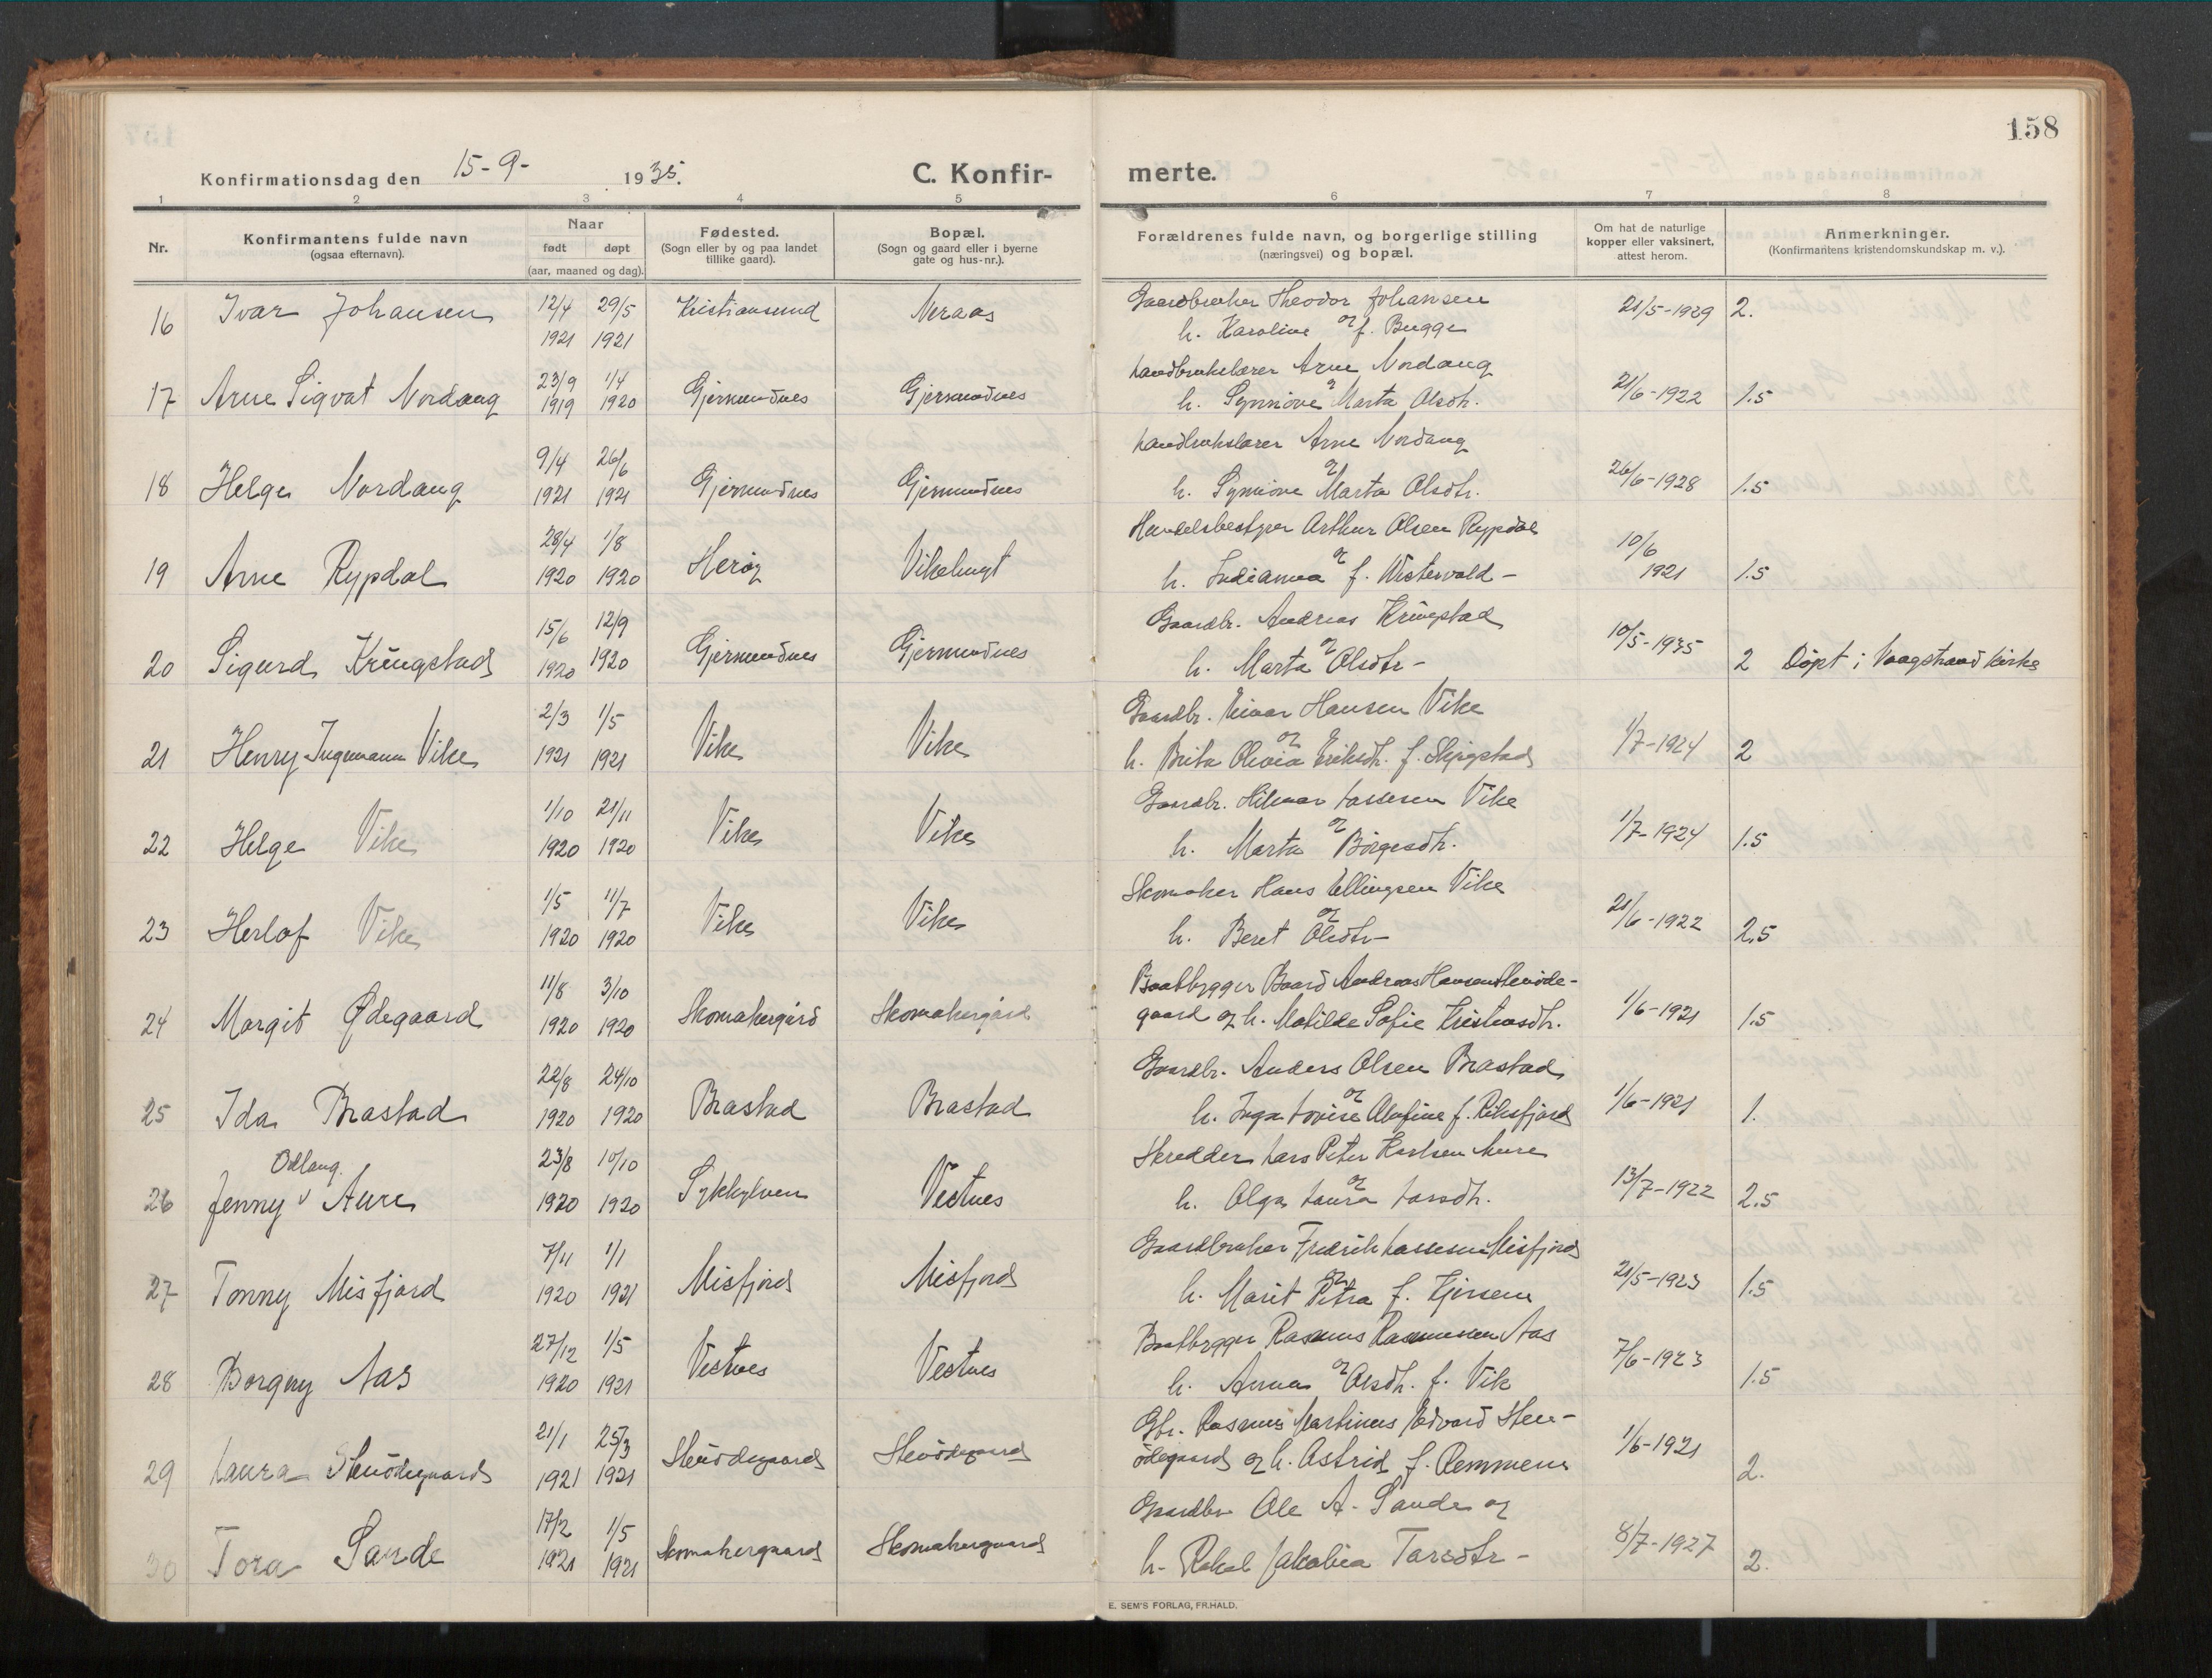 158
Konfirmationsdag den 15-9- 1935.
C. Konfir- merte.
1 2 3 4 5 6 7 8
Nr.
Konfirmantens fulde navn
(ogsaa efternavn).
Naar
født døpt
(aar, maaned og dag).
Fødested.
(Sogn eller by og paa landet
tillike gaard).
Bopæl.
(Sogn og gaard eller i byerne
gate og hus-nr.).
Forældrenes fulde navn, og borgerlige stilling
(næringsvei) og bopæl.
Om hat de naturlige
kopper eller vaksinert,
attest herom.
Anmerkninger.
(Konfirmantens kristendomskundskap m. v.).
12/4 29/5 Gaardbruker Theodor Johansen
16 Ivar Johansen Kristiansund Neraas 21/5-1929 2.
1921 1921 h. Karoline og f. Bugge
23/9 1/4 Landbrukslærer Arne Nordang
17 Arne Sigvat Nordang Gjermundnes Gjermundnes 21/6-1922 1.5
1919 1920 h. Synnöve og Marta Olsdtr.
9/4 26/6 Landbrukslærer Arne Nordang
18 Helge Nordang Gjermundnes Gjermundnes 26/6-1928 1.5
1921 1921 h. Synnöve og Marta Olsdtr.
28/4 1/8 Handelsbestyrer Arthur Olsen Rypdal
19 Arne Rypdal Herøy Vikebugt 10/6 1921 1.5
1920 1920 h. Indianna og f. Westervold-
15/6 12/9 Gaardbr. Andreas Kringstad
20 Sigurd Kringstad Gjermundnes Gjermundnes 10/5-1935 2 Døpt i Vaagstrand kirke
1920 1920 h. Marta og Olsdtr-
2/3 1/5 Gaardbr. Einar Hansen Vike
21 Henry Ingemann Vike Vike Vike 1/7-1924 2
1921 1921 h. Brita Olivia og Eriksdtr. f.
1/10 21/11 Gaardbr. Hilmar Lassesen Vike
22 Helge Vike Vike Vike 1/7-1924 1.5
1920 1920 h. Marta og Börgesdtr.
1/5 11/7 Skomaker Hans Ellingsen Vike
23 Herlof Vike Vike Vike 21/6-1922 2.5
1920 1920 h. Beret og Olsdtr-
11/8 3/10 Baatbygger Baard Andreas Hansen Stenöde-
24 Margit Ødegaard Skomakergård Skomakergård 1/6-1921 1.5
1920 1920 gaard og h. Matilde Sofie Kristensdtr.
22/8 24/10 Gaardbr. Anders Olsen Brastad
25 Ida Brastad Brastad Brastad 1/6-1921 1.
1920 1920 h. Inga Lovise og Olufine f. Riksfjord
Odlaug. 23/8 10/10 Skredder Lars Peter Karlsen Aure
26 Jenny v Aure Sykkylven Vestnes 13/7-1922 2.5
1920 1920 h. Olga Laura og Larsdtr.
7/11 1/1 Gaardbruker Fredrik Lassesen Misfjord
27 Tonny Misfjord Misfjord Misfjord 21/5-1923 1.5
1920 1921 h. Marit og Petra f.
27/12 1/5 Baatbygger Rasmus Rasmussen Aas
28 Borgny Aas Vestnes Vestnes 7/6-1923 1.5
1920 1921 h. Anna og Olsdtr. f. Vik
21/1 25/3 Gbr. Rasmus Martinus Edvard Sten-
29 Laura Stenödegaard Stenödegaard Stenödegaard 1/6-1921 2.
1921 1921 ødegaard og h. Astrid f. Remmem
17/2 1/5 Gaardbr Ole A. Sande og
30 Tora Sande Skomakergaard Skomakergaard 8/7-1927 2.
1921 1921 h. Rakel Jakobia Tarsdtr-
E. SEM'S FORLAG, FR.HALD.